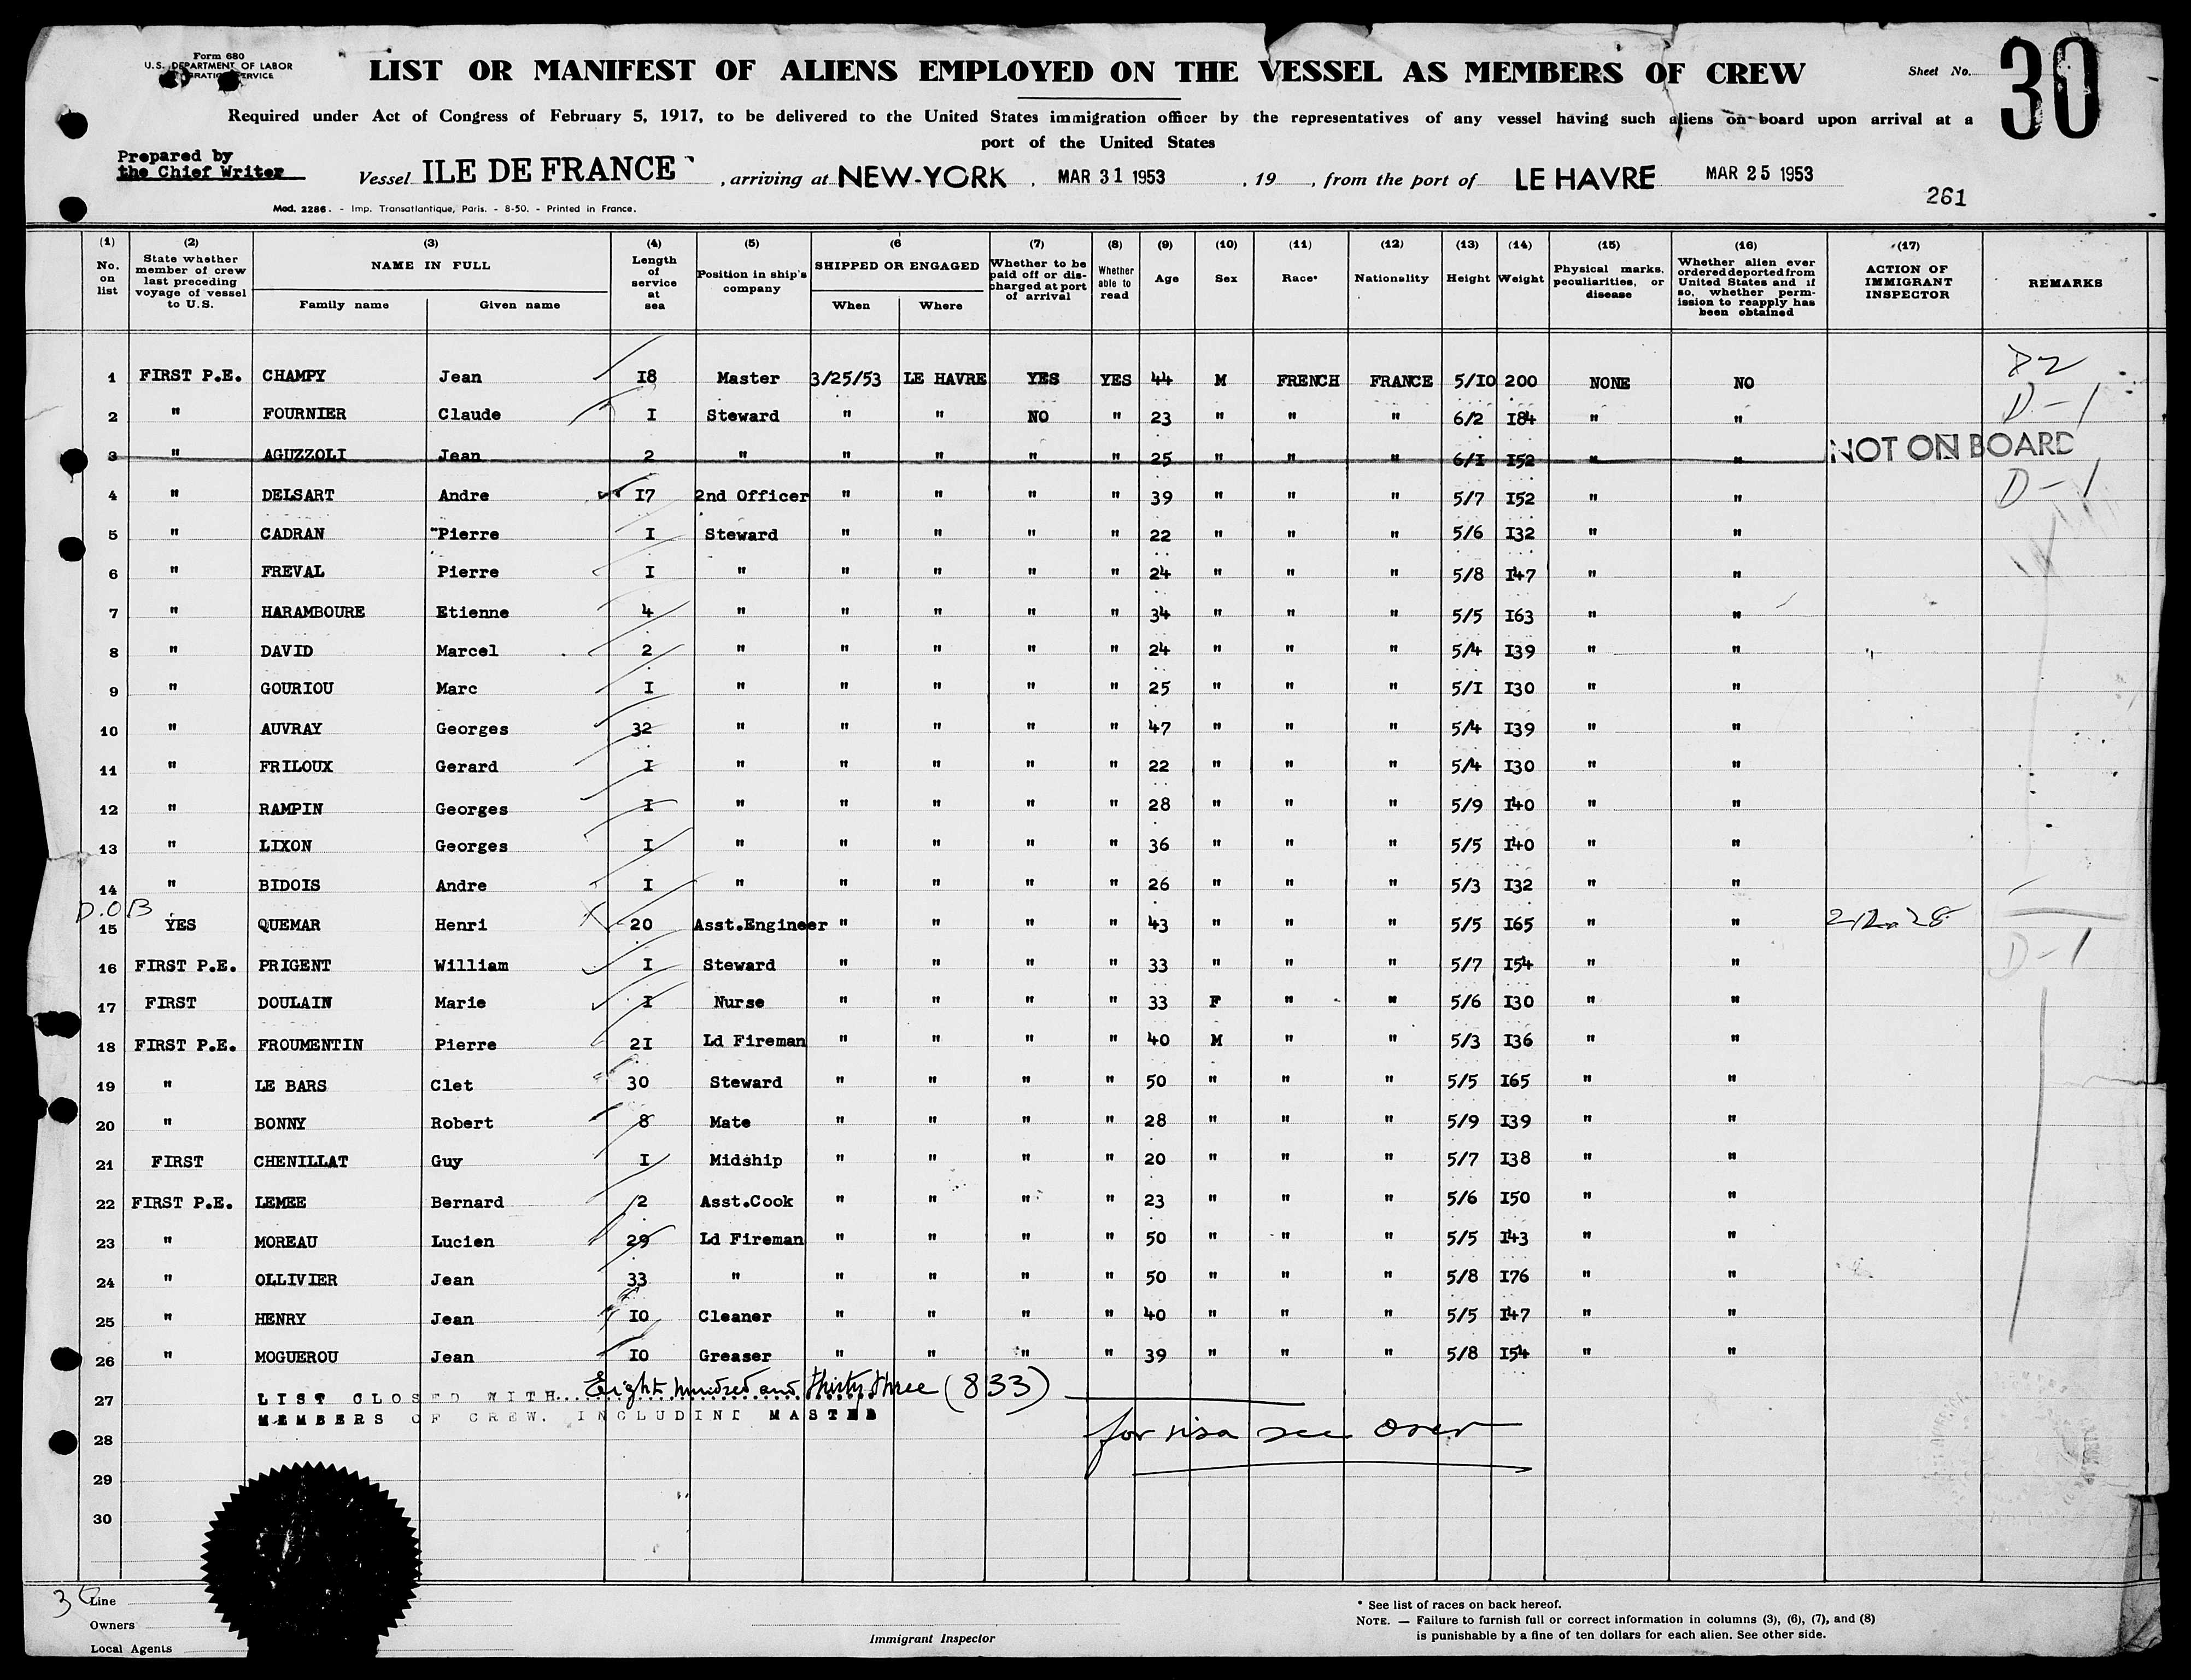 Form 680
U.S. DEPARTMENT OF LABOR
SERVICE
LIST OR MANIFEST OF ALIENS EMPLOYED ON THE VESSEL AS MEMBERS OF CREW
Sheet No. 30
Required under Act of Congress of February 5, 1917, to be delivered to the United States immigration officer by the representatives of any vessel having such aliens on board upon arrival at a
port of the United States
Prepared by
the Chief Writer
Vessel ILE DE FRANCE , arriving at NEW-YORK , MAR 31 1953 , 19 , from the port of LE HAVRE MAR 25 1953
261
Mod. 2286. - Imp. Transatlantique, Paris. - 8-50. - Printed in France.
(1) No. on list
(2) State whether member of crew last preceding voyage of vessel to U.S.
(3) NAME IN FULL Family name Given name
(4) Length of service at sea
(5) Position in ship's company
(6 SHIPPED OR ENGAGED When Where
(7) Whether to be paid off or discharged at port of arrival
(8) Whether able to read
(9) Age
(10) Sex
(11) Race*
(12) Nationality
(13) Height
(14) Weight
(15) Physical marks, peculiarities, or disease
(16) Whether alien ever ordered deported from United States and if so, whether permission to reapply has been obtained
(17) ACTION OF IMMIGRANT INSPECTOR
REMARKS
1 FIRST P.E. CHAMPY Jean 18 Master 3/25/53 LE HAVRE YES YES 44 M FRENCH FRANCE 5/10 200 NONE NO D2
2 " FOURNIER Claude I Steward " " NO " 23 " " " 6/2 184 " " D-1
3 " AGUZZOLI Jean 2 " " " " " 25 " " " 6/I 152 " " NOT ON BOARD
4 " DELSART Andre 17 2nd Officer " " " " 39 " " " 5/7 152 " " D-1
5 " CADRAN "Pierre I Steward " " " " 22 " " " 5/6 132 " "
6 " FREVAL Pierre I " " " " " 24 " " " 5/8 147 " "
7 " HARAMBOURE Etienne 4 " " " " " 34 " " " 5/5 163 " "
8 " DAVID Marcel 2 " " " " " 24 " " " 5/4 139 " "
9 " GOURIOU Marc I " " " " " 25 " " " 5/I 130 " "
10 " AUVRAY Georges 32 " " " " " 47 " " " 5/4 139 " "
11 " FRILOUX Gerard I " " " " " 22 " " " 5/4 130 " "
12 " RAMPIN Georges I " " " " " 28 " " " 5/9 140 " "
13 " LIXON Georges I " " " " " 36 " " " 5/5 140 " "
14 " BIDOIS Andre I " " " " " 26 " " " 5/3 132 " "
D.O.B
15 YES QUEMAR Henri 20 Asst.Engineer " " " " 43 " " " 5/5 165 " "
16 FIRST P.E. PRIGENT William I Steward " " " " 33 " " " 5/7 154 " " D-1
17 FIRST DOULAIN Marie I Nurse " " " " 33 F " " 5/6 130 " "
18 FIRST P.E. FROUMENTIN Pierre 21 Ld Fireman " " " " 40 M " " 5/3 136 " "
19 " LE BARS Clet 30 Steward " " " " 50 " " " 5/5 165 " "
20 " BONNY Robert 8 Mate " " " " 28 " " " 5/9 139 " "
21 FIRST CHENILLAT Guy I Midship " " " " 20 " " " 5/7 138 " "
22 FIRST P.E. LEMEE Bernard 2 Asst.Cook " " " " 23 " " " 5/6 150 " "
23 " MOREAU Lucien 29 Ld Fireman " " " " 50 " " " 5/5 143 " "
24 " OLLIVIER Jean 33 " " " " " 50 " " " 5/8 176 " "
25 " HENRY Jean 10 Cleaner " " " " 40 " " " 5/5 147 " "
26 " MOGUEROU Jean 10 Greaser " " " " 39 " " " 5/8 154 " "
27 LIST CLOSED WITH Eight hundred and thirty three (833)
MEMBERS OF CREW. INCLUDING MASTER
28 for visa see over
29
30
3
Line
Owners
Local Agents
Immigrant Inspector
* See list of races on back hereof.
NOTE. — Failure to furnish full or correct information in columns (3), (6), (7), and (8)
is punishable by a fine of ten dollars for each alien. See other side.